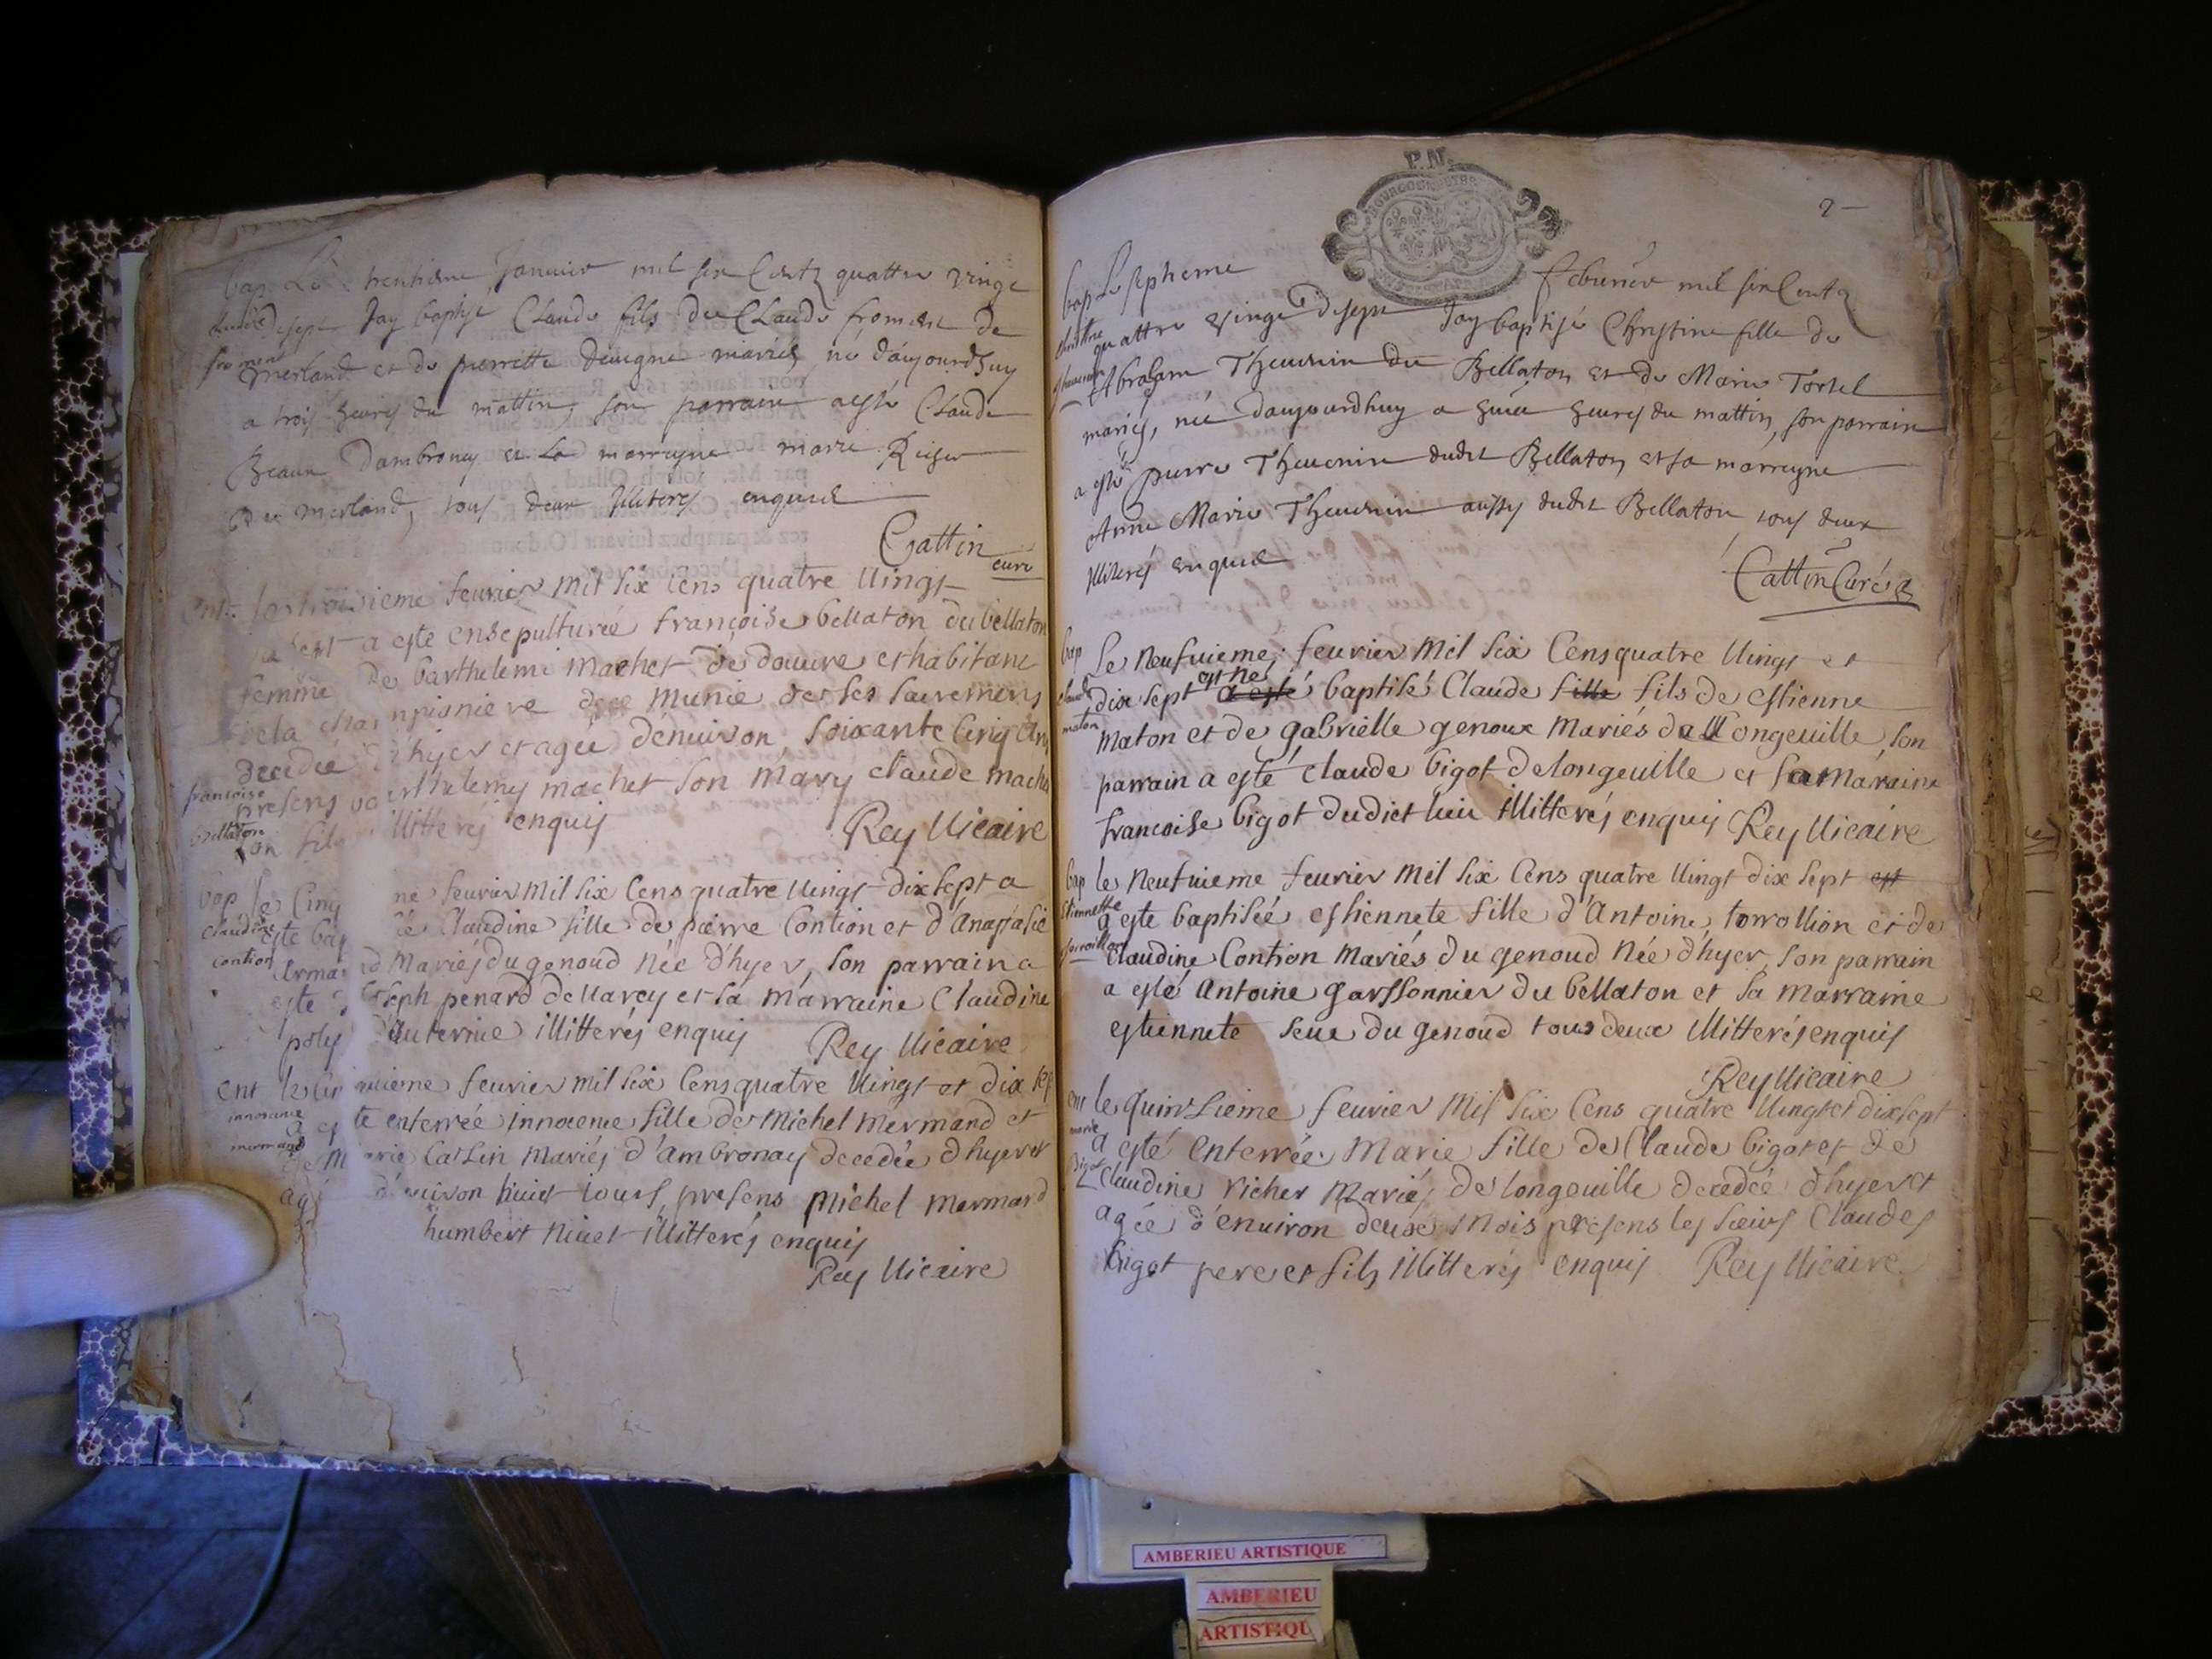 bap Le trentieme Janvier mil six Centz quattre vingt
disept Jay baptisé Claude fils de Claude froment de
merland et de pierrette mariés né daujourdhuy
a trois heures du mattin, son parrain a esté Claude
Beaux Dambronay et la marreyne marie
de merland, tous deux Illiterés enquis
Cattin curé
froment
ent. feurier mil six cens quatre Vingt
a este ensepulturée francoise bellaton du bellaton
femme de barthelemi machet de douure et habitant
munie de ses sacremens
decedée d'hyer et agée d'enuiron soixante cinq ans
presens barthelemy machet son mary claude machet
son fils illitterés enquis Rey Vicaire
francoise
bellaton
bap le cinq ne feurier mil six cens quatre vingt dix sept a
este bap ée Claudine fille de pierre Contion et d'Anastasie
Armand Mariés du genoud née d'hyer, son parrain a
este Joseph penard de Varey et sa marraine Claudine
poly illitterés enquis Rey Vicaire
claudine
contion
ent le cinquieme feurier mil six cens quatre vingt et dix sep
a este enterrée innocence fille de Michel mermand et
de Marie Carlin mariés d'ambronay decedée d'hyer et
agée d'enuiron huict iours, presens Michel mermand
humbert niuet illitterés enquis
Rey Vicaire
innocence
mermand
P.N.
2
bap Le septieme feburier mil six Centz
quattre vingt disept Jay baptisé Christine fille de
Abraham Theuenin du Bellaton et de Marie Tortel
mariés, née daujourdhuy a huict heures du mattin, son parrain
a esté pierre Theuenin dudit Bellaton et sa marreyne
Anne Marie Theuenin aussy dudit Bellaton tous deux
Illiterés enquis
Cattin Curé
christine
theuenin
bap Le neufuieme feurier mil six cens quatre vingt et
dix sept est né a esté baptisé Claude fille fils de estienne
maton et de gabrielle genoux mariés de Longeuille, son
parrain a esté claude bigot de longeuille et sa maraine
francoise bigot dudict lieu illitterés enquis Rey Vicaire
claude
maton
bap le neufuieme feurier mil six cens quatre vingt dix sept est
a este baptisée estiennete fille d'Antoine torrollion et de
claudine Contion mariés du genoud née d'hyer, son parrain
a esté Antoine garssonnier du bellaton et sa marraine
estiennete seue du genoud tous deux illitterés enquis
Rey Vicaire
Etiennette
ent le quinzieme feurier mil six cens quatre vingt et dix sept
a esté enterrée Marie fille de Claude bigot et de
claudine richer mariés de longeuille decedée d'hyer et
agée d'enuiron deux mois presens les sieurs Claudes
bigot pere et fils illitterés enquis Rey Vicaire
marie
Bigot
AMBERIEU ARTISTIQUE
AMBERIEU
ARTISTIQU